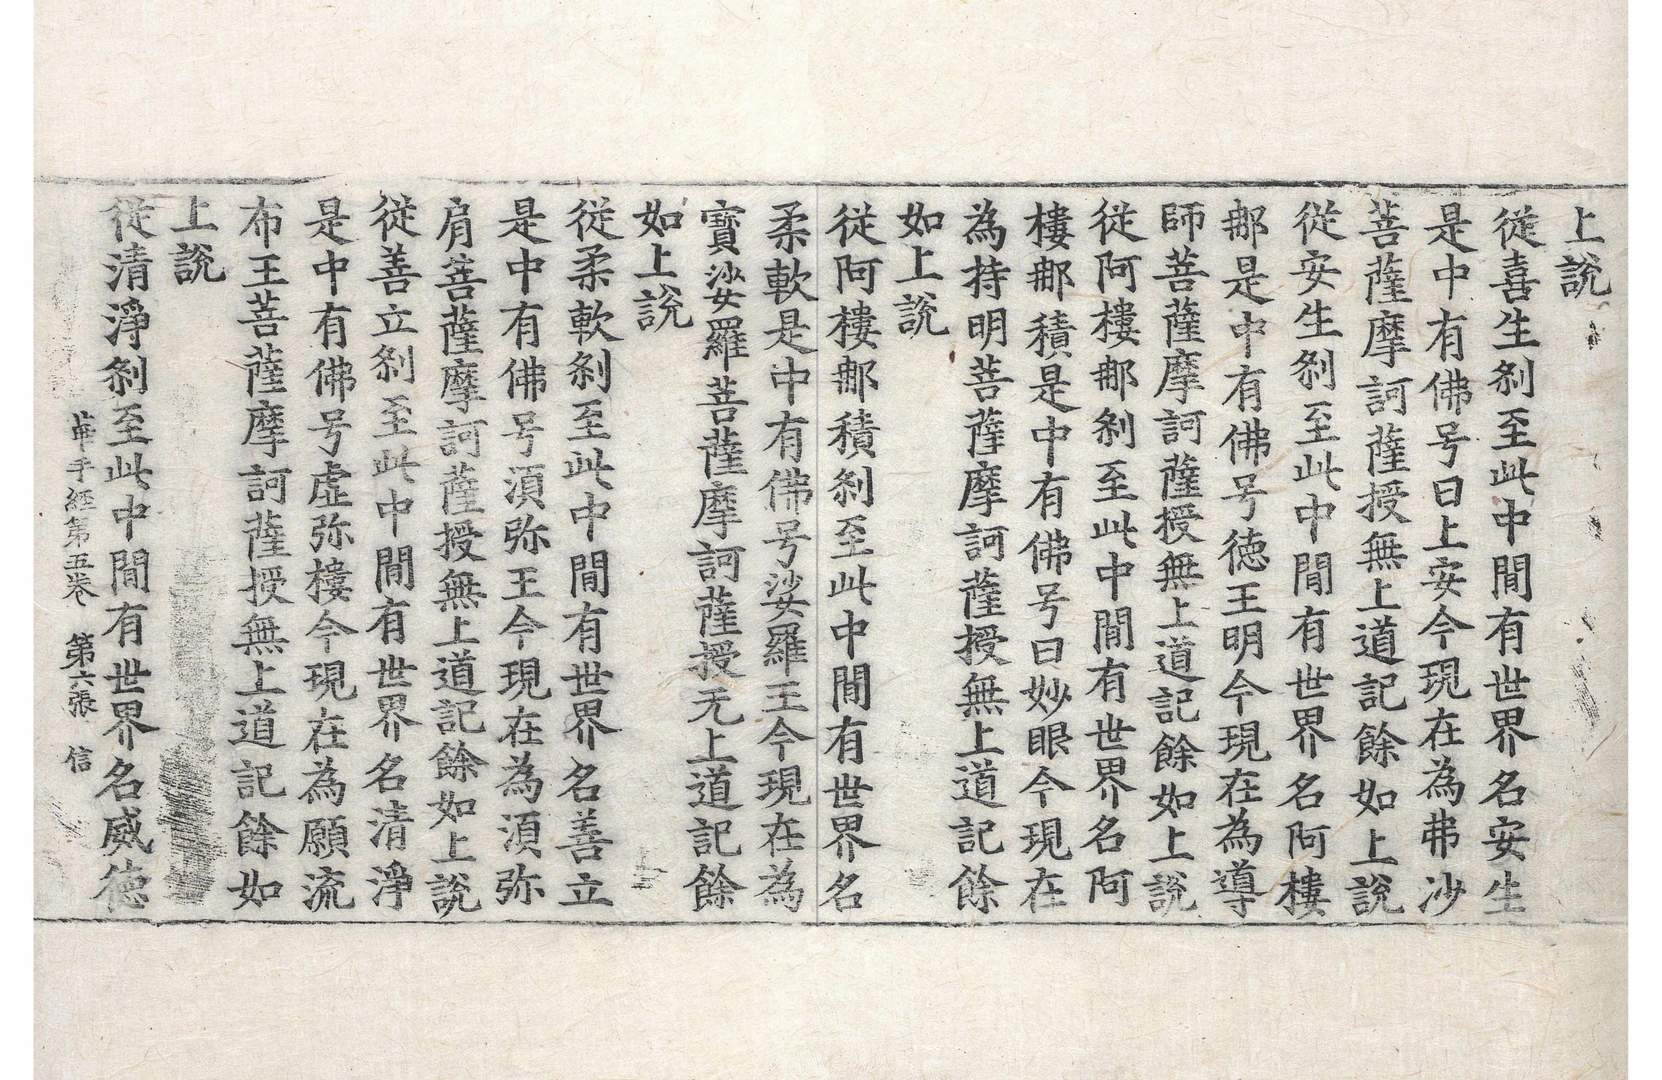 上說
從喜生刹至此中間有世界名安生
是中有佛号曰上安今現在為弗沙
菩薩摩訶薩授無上道記餘如上說
從安生刹至此中間有世界名阿樓
那是中有佛号德王明今現在為導
師菩薩摩訶薩授無上道記餘如上說
從阿樓那刹至此中間有世界名阿
樓那積是中有佛号曰妙眼今現在
為持明菩薩摩訶薩授無上道記餘
如上說
從阿樓那積刹至此中間有世界名
柔軟是中有佛号娑羅王今現在為
寶娑羅菩薩摩訶薩授无上道記餘
如上說
從柔軟刹至此中間有世界名善立
是中有佛号湏弥王今現在為湏弥
肩菩薩摩訶薩授無上道記餘如上說
從善立刹至此中間有世界名清淨
是中有佛号虛弥樓今現在為願流
布王菩薩摩訶薩授無上道記餘如
上說
從清淨刹至此中間有世界名威德
華手經第五卷 第六張 信